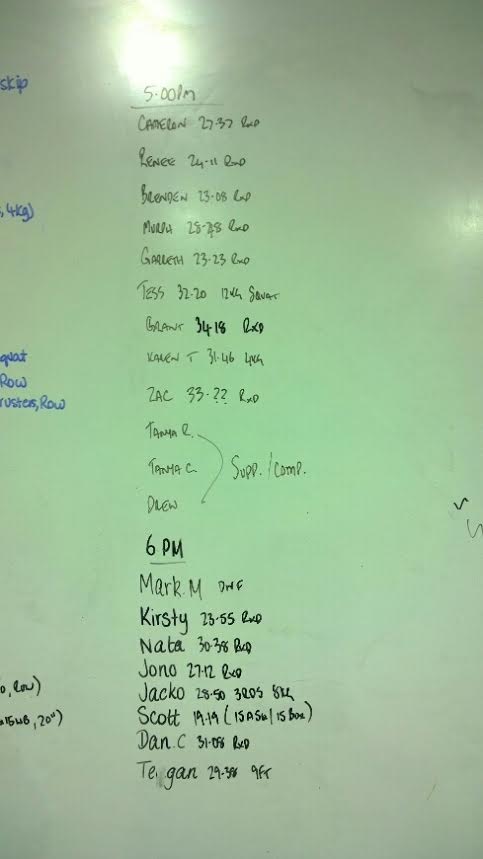 skip
5:00PM
CAMERON 27-37 RXD
RENEE 24-11 RXD
BRENDEN 23-08 RXD
, 4kg)
MURPH 28-28 RXD
GARRETH 23-23 RXD
TESS 32-20 12KG SQUAT
GRANT 34-18 RXD
quat
KAREN T 31-46 4KG
Row
ZAC 33-?? RXD
rusters, Row
TANYA R.
TANYA C. SUPP./COMP.
DREW
6 PM
Mark.M DNF
Kirsty 23-55 RXD
Nata 30-38 RXD
Jono 27-12 RXD
, Row)
Jacko 28-50 3RDS 8KG
Scott 19-19 (15 / 15 Box)
15WB, 20")
Dan.C 31-08 RXD
Te gan 29-38 9FT